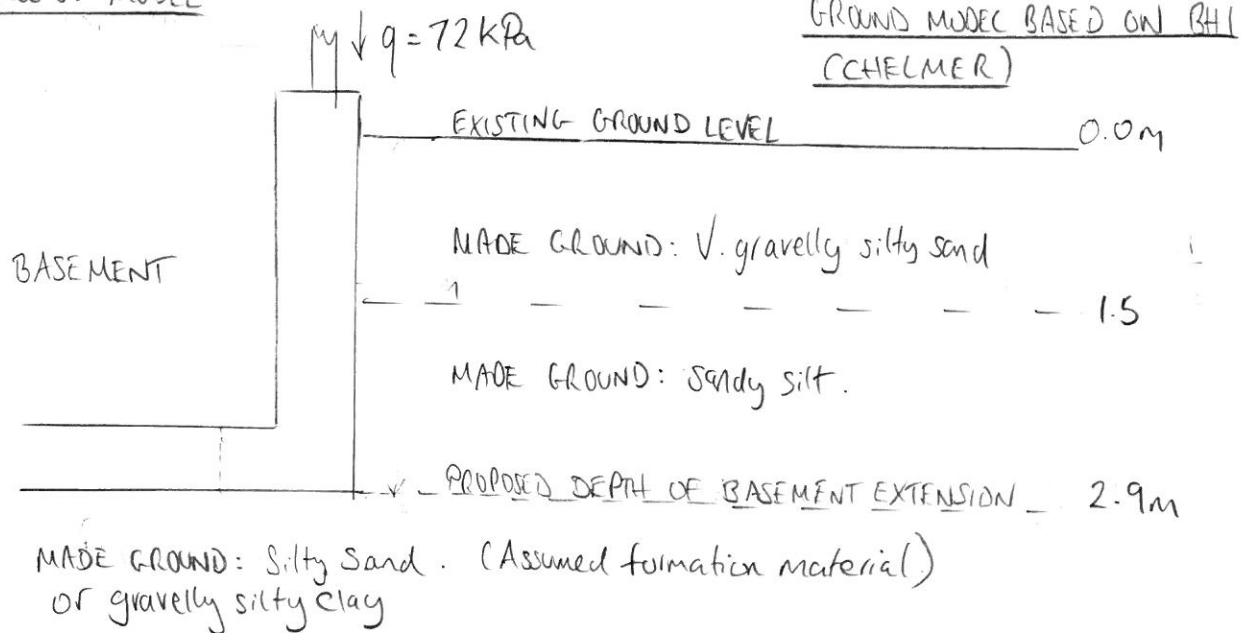 MODEL
GROUND MODEL BASED ON BH1
(CHELMER)
q = 72 kPa
EXISTING GROUND LEVEL 0.0m
MADE GROUND: V. gravelly silty sand
BASEMENT
1.5
MADE GROUND: Sandy silt.
PROPOSED DEPTH OF BASEMENT EXTENSION 2.9m
MADE GROUND: Silty Sand. (Assumed formation material)
or gravelly silty clay